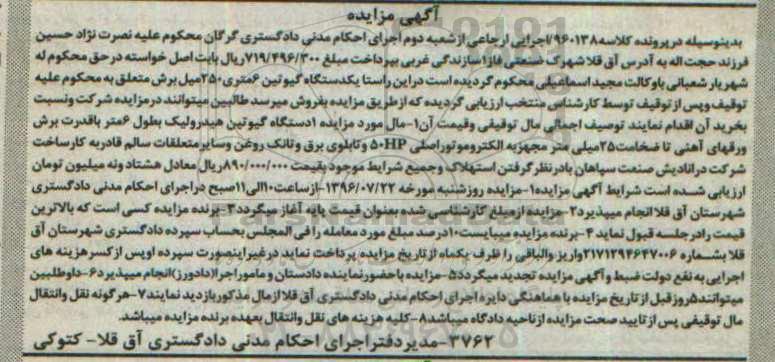 آگهی مزایده
بدینوسیله در پرونده کلاسه ۹۶۰۱۳۸/اجرایی ارجاعی از شعبه دوم اجرای احکام مدنی دادگستری گرگان محکوم علیه نصرت نژاد حسین
فرزند حجت اله به آدرس آق قلا شهرک صنعتی فاز ۱ سازندگی غربی بپرداخت مبلغ ۷۱۹/۴۹۶/۳۰۰ریال بابت اصل خواسته در حق محکوم له
شهریار شعبانی با وکالت مجید اسماعیلی محکوم گردیده است در این راستا یکدستگاه گیوتین ۶متری ۲۵۰میل برش متعلق به محکوم علیه
توقیف و پس از توقیف توسط کارشناس منتخب ارزیابی گردیده که از طریق مزایده بفروش میرسد طالبین میتوانند در مزایده شرکت ونسبت
بخرید آن اقدام نمایند توصیف اجمالی مال توقیفی وقیمت آن ۱-مال مورد مزایده ۱دستگاه گیوتین هیدرولیک بطول ۶متر باقدرت برش
ورقهای آهنی تا ضخامت ۲۵میلی متر مجهز به الکتروموتور اصلی ۵۰HP وتابلوی برق و تانک روغن وسایر متعلقات سالم قادر به کار ساخت
شرکت در انادیش صنعت سپاهان بادر نظر گرفتن استهلاک وجمیع شرایط موجود بقیمت ۸۹۰/۰۰۰/۰۰۰ریال معادل هشتاد ونه میلیون تومان
ارزیابی شده است شرایط آگهی مزایده ۱-مزایده روز شنبه مورخه ۱۳۹۶/۰۷/۲۲-از ساعت ۱۰الی ۱۱صبح در اجرای احکام مدنی دادگستری
شهرستان آق قلا انجام میپذیرد ۲-مزایده از مبلغ کارشناسی شده بعنوان قیمت پایه آغاز میگردد ۳-برنده مزایده کسی است که بالاترین
قیمت را در جلسه قبول نماید ۴-برنده مزایده میبایست ۱۰درصد مبلغ مورد معامله را فی المجلس بحساب سپرده دادگستری شهرستان آق
قلا بشماره ۲۱۷۱۲۹۴۶۴۷۰۰۶ واریز والباقی را ظرف یکماه از تاریخ مزایده پرداخت نماید در غیر اینصورت سپرده او پس از کسر هزینه های
اجرایی به نفع دولت ضبط و آگهی مزایده تجدید میگردد ۵-مزایده باحضور نماینده دادستان و مامور اجرا(دادورز)انجام میپذیرد ۶-داوطلبین
میتوانند ۵روز قبل از تاریخ مزایده با هماهنگی دایره اجرای احکام مدنی دادگستری آق قلا از مال مذکور بازدید نمایند ۷-هرگونه نقل وانتقال
مال توقیفی پس از تایید صحت مزایده از ناحیه دادگاه میباشد ۸-کلیه هزینه های نقل وانتقال بعهده برنده مزایده میباشد.
۳۷۶۲-مدیر دفتر اجرای احکام مدنی دادگستری آق قلا- کتوکی